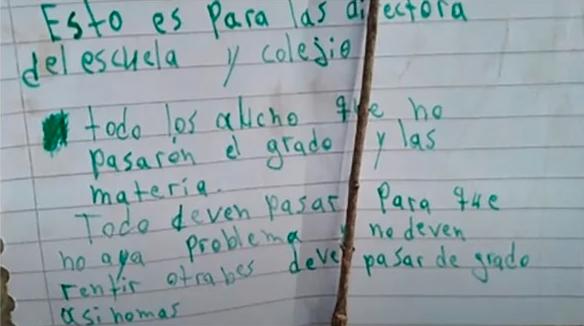 Esto es Para las directora
del escuela y colegio
todo los alucho que no
pasaron el grado y las
materia.
Todo deven pasar Para que
no aya problema y no deven
rentir otrabes deven pasar de grado
asi nomas